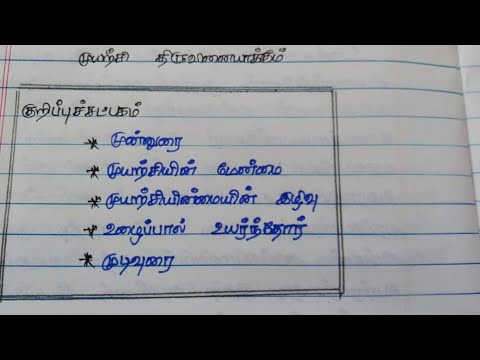 முயற்சி திருவினையாக்கும்
குறிப்புச்சட்டகம்
* முன்னுரை
* முயற்சியின் மேன்மை
* முயற்சியின்மையின் இழிவு
* உழைப்பால் உயர்ந்தோர்
* முடிவுரை